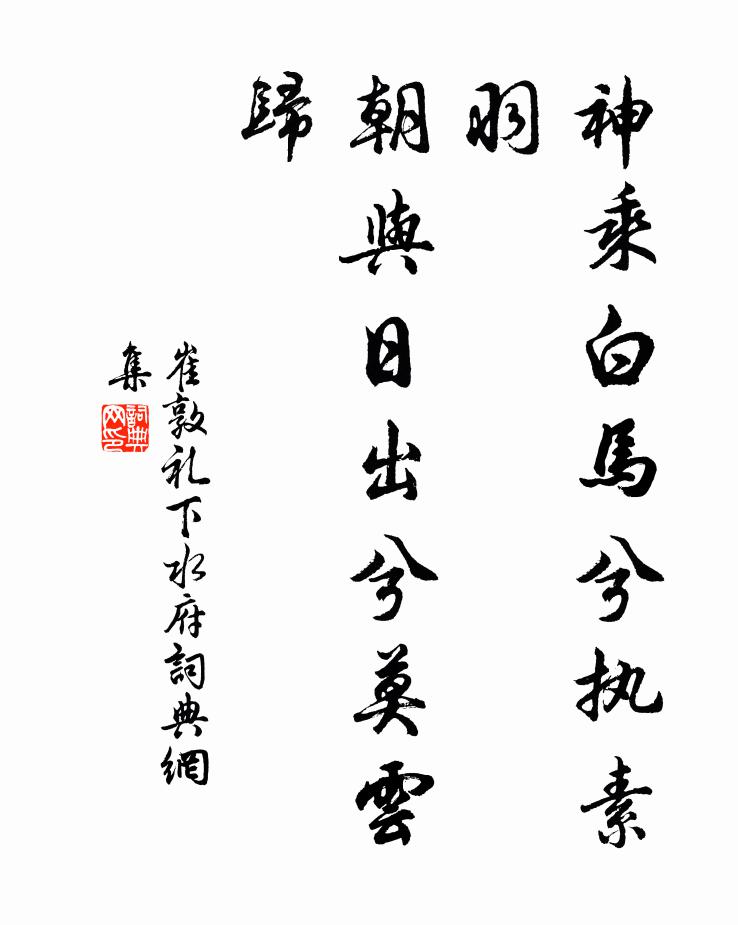 神乘白馬兮执素
羽
朝與日出兮莫雲
歸
崔敦礼下水府詞典網
集
詞典
网印